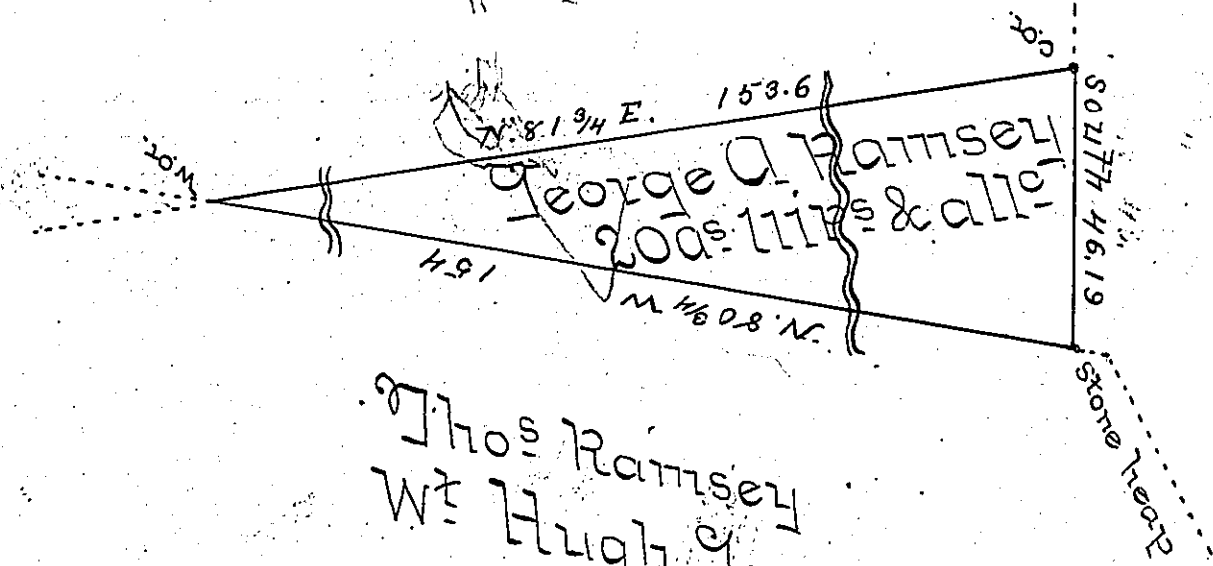 C.O.
N. 81 3/4 E. 153.6
George A Ramsey
20as 111ps & allc
SOUTH 46.19
W.O.
154
N. 80 3/4 W
stone heap
Thos Ramsey
Wt Hugh G